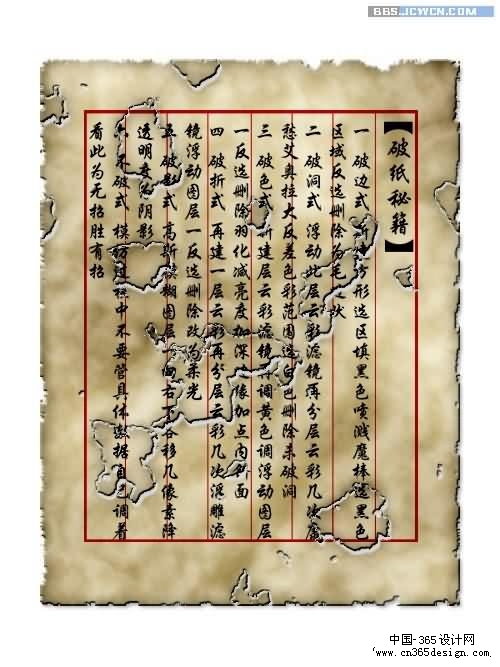 BBS.JCWCN.COM
【破纸秘籍】
一 破边式 新建方形选区填黑色喷溅魔棒选黑色
区域反选删除为毛状
二 破洞式 浮动此层云彩滤镜再分层云彩几次
愁艾奥拉大反差色彩范围选白色删除杀破洞
三 破色式 新建层云彩滤镜再调黄色调浮动图层
一反选删除羽化减亮度加深像加点内斜面
四 破折式 再建一层云彩再分层云彩几次浮雕滤
镜浮动图层一反选删除改为柔光
五 破影式 高斯模糊图层一向右下各移几像素降
透明度为阴影
六 不破式 模仿过程中不要管具体数据自色调着
看此为无招胜有招
中国-365设计网
‘www.cn365design.com,